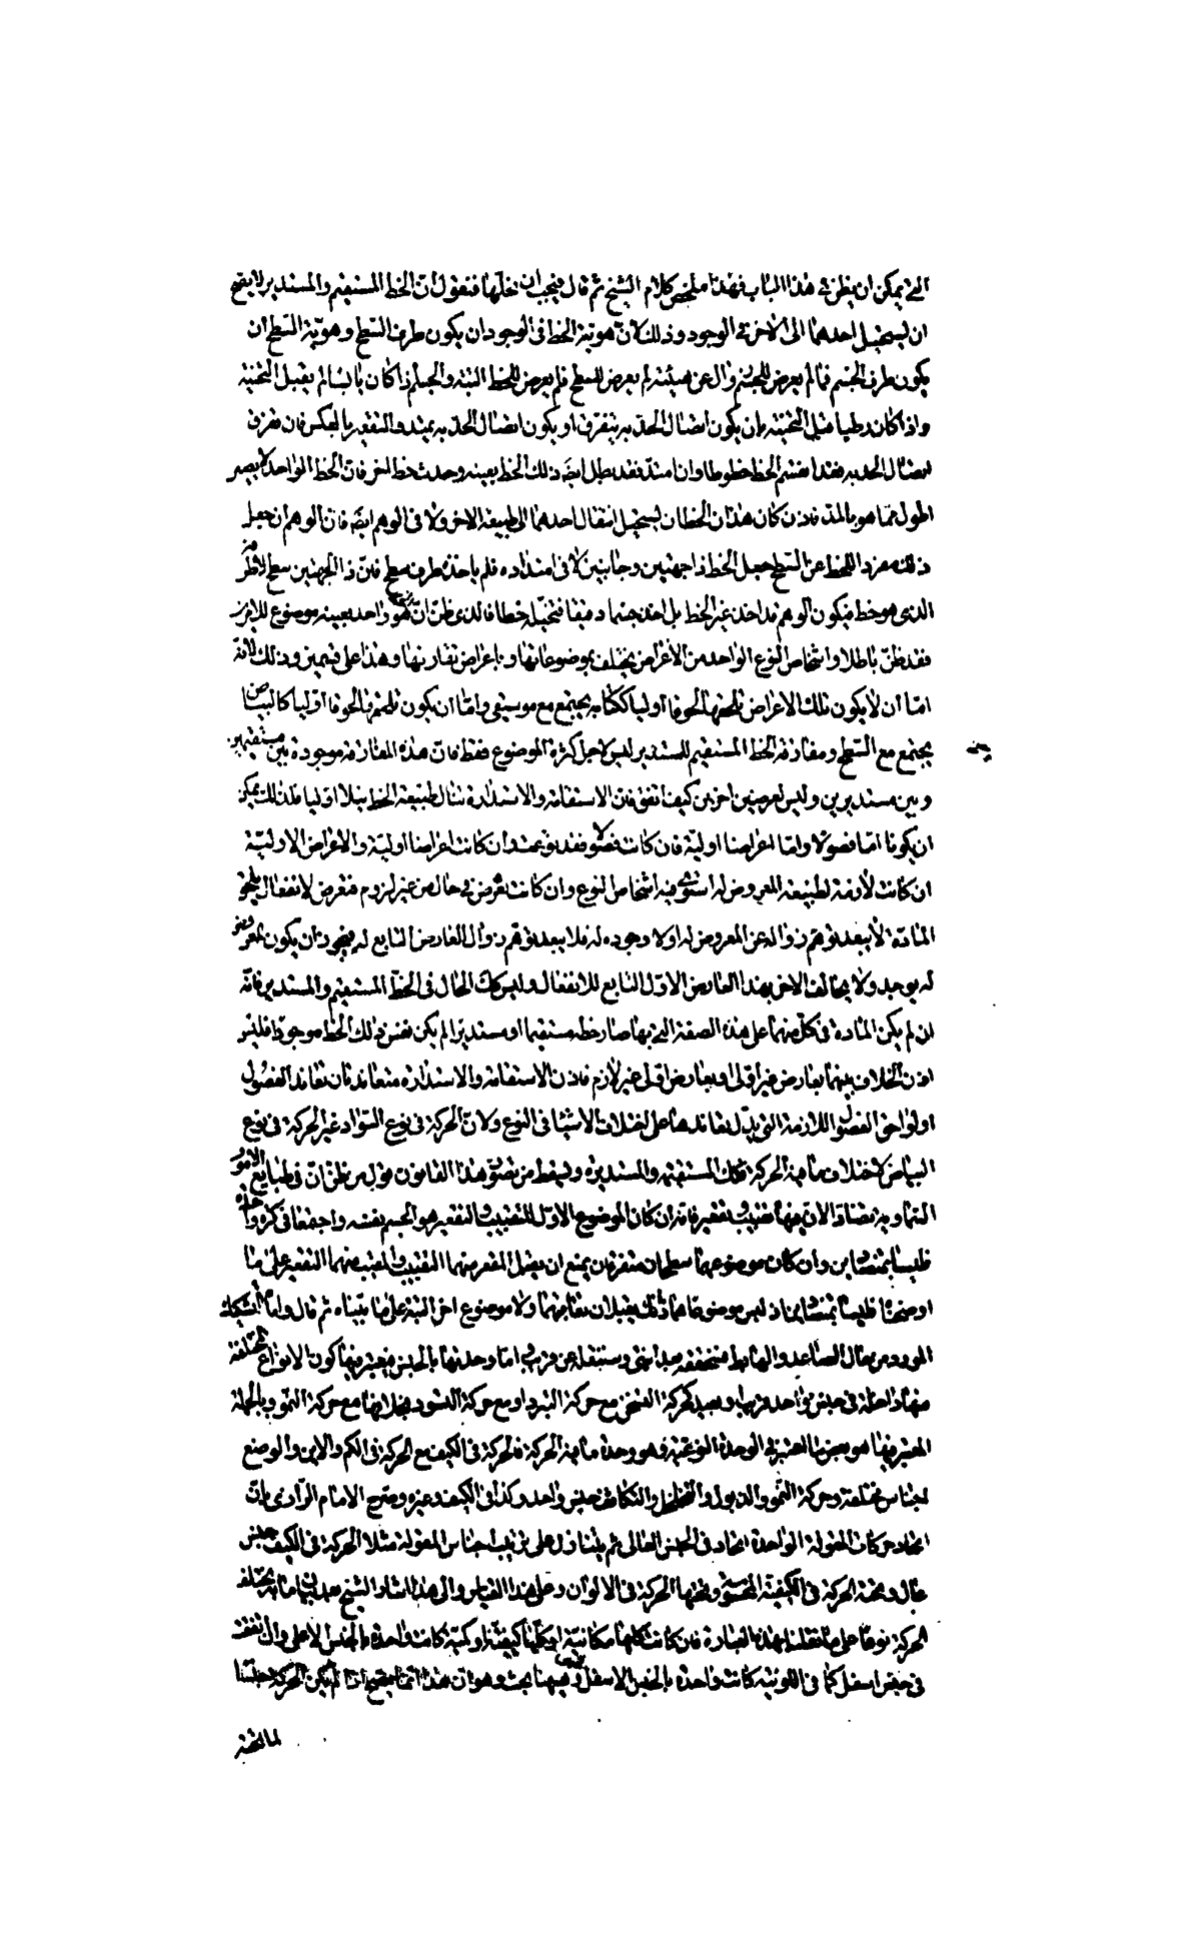 التى يمكن ان يظن فى هذا الباب فهذا ملخص كلام الشيخ ثم قال فيجب ان نحلها فنقول ان الخط المستقيم والمستدير لا يصح
ان يستحيل احدهما الى الاخر فى الوجود وذلك لان هوية الخط فى الوجود ان يكون طرف السطح وهوية السطح ان
يكون طرف الجسم فما لم يعرض للجسم زوال عن هيئته لم يعرض للسطح فلم يعرض للخط البتة والجسم اذا كان يابسا لم يقبل التحنية
واذا كان رطبا قبل التحنية بان يكون اتصال الحدبه يتفرق او يكون اتصال الحدبه يمتد والتقعير بالعكس فان تفرق
اتصال الحدبه فقد انقسم الخط خطوطا وان امتد فقد بطل ايضا ذلك الخط بعينه وحدث خط اخر فان الخط الواحد لا يصير
اطول مما هو بالمد فاذن كان هذان الخطان يستحيل انتقال احدهما الى طبيعة الاخر ولا فى الوهم ايضا فان الوهم ان جعل
ذلك مفردا للخط عن السطح جعل الخط ذا جهتين وجانبين لا فى امتداده فلم ياخذه طرف سطح فان ذا الجهتين سطح لا طرفه
الذى هو خط فيكون الوهم قد اخذ غير الخط بل اخذ جسما دقيقا فتخيله خطا فالذى ظن ان هو واحد بعينه موضوع للامرين
فقد ظن باطلا واشخاص النوع الواحد من الاعراض يختلف بموضوعاتها و باعراض تقارنها وهذا على قسمين وذلك لانه
اما ان لا يكون تلك الاعراض تلحقها لحوقا اوليا ككتابه يجتمع مع موسيقى واما ان يكون تلحقها لحوقا اوليا كالبياض
يجتمع مع السطح ومفارقة الخط المستقيم للمستدير ليس لاجل كثرة الموضوع فقط فان هذه المفارقة موجودة بين مستقيمين
وبين مستديرين وليس لعرضين اخرين كيف اتفق فان الاستقامة والاستدارة تنال طبيعة الخط نيلا اوليا فلذلك يمكن
ان يكونا اما فصولا واما اعراضا اولية فان كانت فصولا فقد نوعت وان كانت اعراضا اولية والاعراض الاولية
ان كانت لازمة لطبيعة المعروض له استوى فيه اشخاص النوع وان كانت تعرض فى حال من غير لزوم فتعرض لانفعال يلحق
المادة لا يبعد توهم زواله عن المعروض له اولا وجوده له فلا يبعد توهم زوال العارض التابع له فيجوز ان يكون المعروض
له يوجد ولا يخالف الاخر بهذا العارض الاول التابع للانفعال وليس كك الحال فى الخط المستقيم والمستدير فانه
ان لم يكن المادة فى كل منهما على هذه الصفة التى بها صار خطه مستقيما او مستديرا لم يكن نفس ذلك الخط موجودا فليس
اذن الخلاف بينهما بعارض غير اولى او بعارض اولى غير لازم فاذن الاستقامة والاستدارة متعاندتان تعاند الفصول
او لواحق الفصول اللازمة التى يدل تعاندها على اختلاف الاشياء فى النوع ولان الحركة فى نوع السواد غير الحركة فى نوع
البياض لاختلاف ما فيه الحركة فكك المستقيمة والمستديرة ويسقط من تصور هذا القانون قول من ظن ان فى طبايع الامور
السماوية تضادا لان فيها تقبيب و تقعير فانه ان كان الموضوع الاول للتقبيب والتقعير هو الجسم نفسه واجتمعا فى كرة واحدة
فليسا بمتضادين وان كان موضوعهما سطحان متفرقان يمتنع ان يقبل المقعر منهما التقبيب والمقبب منهما التقعير على ما
اوضحنا فليسا بمتضادين اذ ليس موضوعاهما ذلك يقبلان تقابهما ولا موضوع اخر البتة على ما بيناه ثم قال واما الشكك
المورد من حال الصاعد والهابط فنحققه بعد اشئ وستقف عن قريب اما وحدتها بالجنس فيعتبر فيها كون الانواع المختلفة
منها داخلة فى جنس واحد قريب او بعيد كحركة التسخن مع حركة التبرد او مع حركة التسود بخلافها مع حركة النمو وبالجملة
المعتبر فيها هو بعض ما اعتبر فى الوحدة النوعية وهو وحدة ما فيه الحركة فالحركة فى الكيف مع الحركة فى الكم والاين والوضع
اجناس مختلفة وحركة النمو والذبول والتخلخل والتكاثف جنس واحد وكذا فى الكيف وغيره وصرح الامام الرازى بان
اتحاد حركات المقولة الواحدة اتحاد فى الجنس العالى ثم يتنازل على ترتيب اجناس المقولة مثلا الحركة فى الكيف جنس
عال وتحته الحركة فى الكيفية المحسوسة وتحتها الحركة فى الالوان وعلى هذا القياس والى هذا اشار الشيخ بعد بيان ما به يختلف
الحركة نوعا على ما نقلنا بهذه العبارة فان كانت كلها مكانية او كلها كيفية او كمية كانت واحدة بالجنس الاعلى وان اتفقت
فى جنس اسفل كما فى اللونية كانت واحدة بالجنس الاسفل وههنا بحث وهو ان هذا انما يصح اذا لم يكن الحركة جنسا
لما تحته